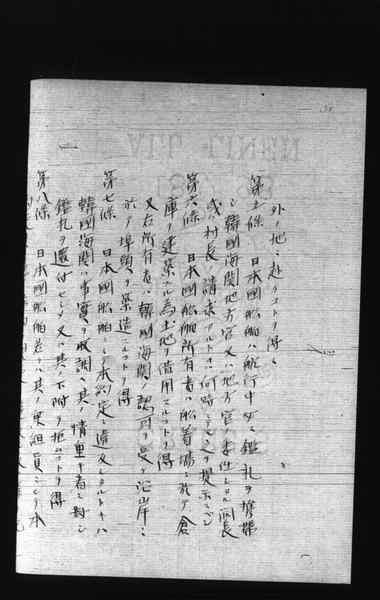 外ノ地ニ赴クコトヲ得ス
第五條 日本國船舶ハ航行中必ス鑑札ヲ携帶
シ韓國海關地方官又ハ地方官ノ委任シタル洞長
或ハ村長ノ請求アルトキハ何時ニテモ之ヲ提示スベシ
第六條 日本國船舶所有者ハ船着場ニ於テ倉
庫ヲ建築スル為土地ヲ借用スルコトヲ得
又右所有者ハ韓國海關ノ認可ヲ受ケ沿岸ニ
於テ埠頭ヲ築造スルコトヲ得
第七條 日本國船舶ニシテ本約定ニ違反シタルトキハ
韓國海關ハ事實ヲ取調ヘ其ノ情重キ者ニ對シ
鑑札ヲ還付セシメ又ハ其ノ下附ヲ拒ムコトヲ得
第八條 日本國船舶若クハ其ノ乗組員ニシテ本